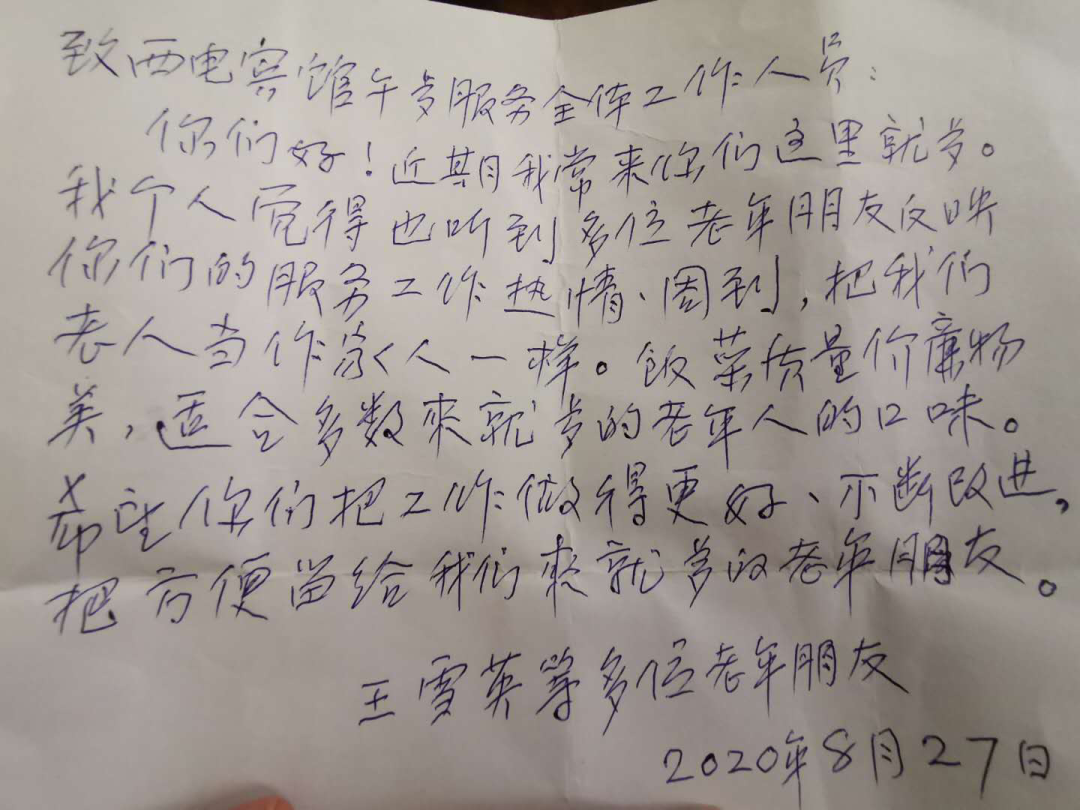 致西电宾馆午歺服务全体工作人员:
你们好!近期我常来你们这里就歺。
我个人觉得也听到多位老年朋友反映
你们的服务工作热情、周到,把我们
老人当作家人一样。饭菜质量价廉物
美,适合多数来就歺的老年人的口味。
希望你们把工作做得更好、不断改进,
把方便留给我们来就歺的老年朋友。
王雪英等多位老年朋友
2020年8月27日